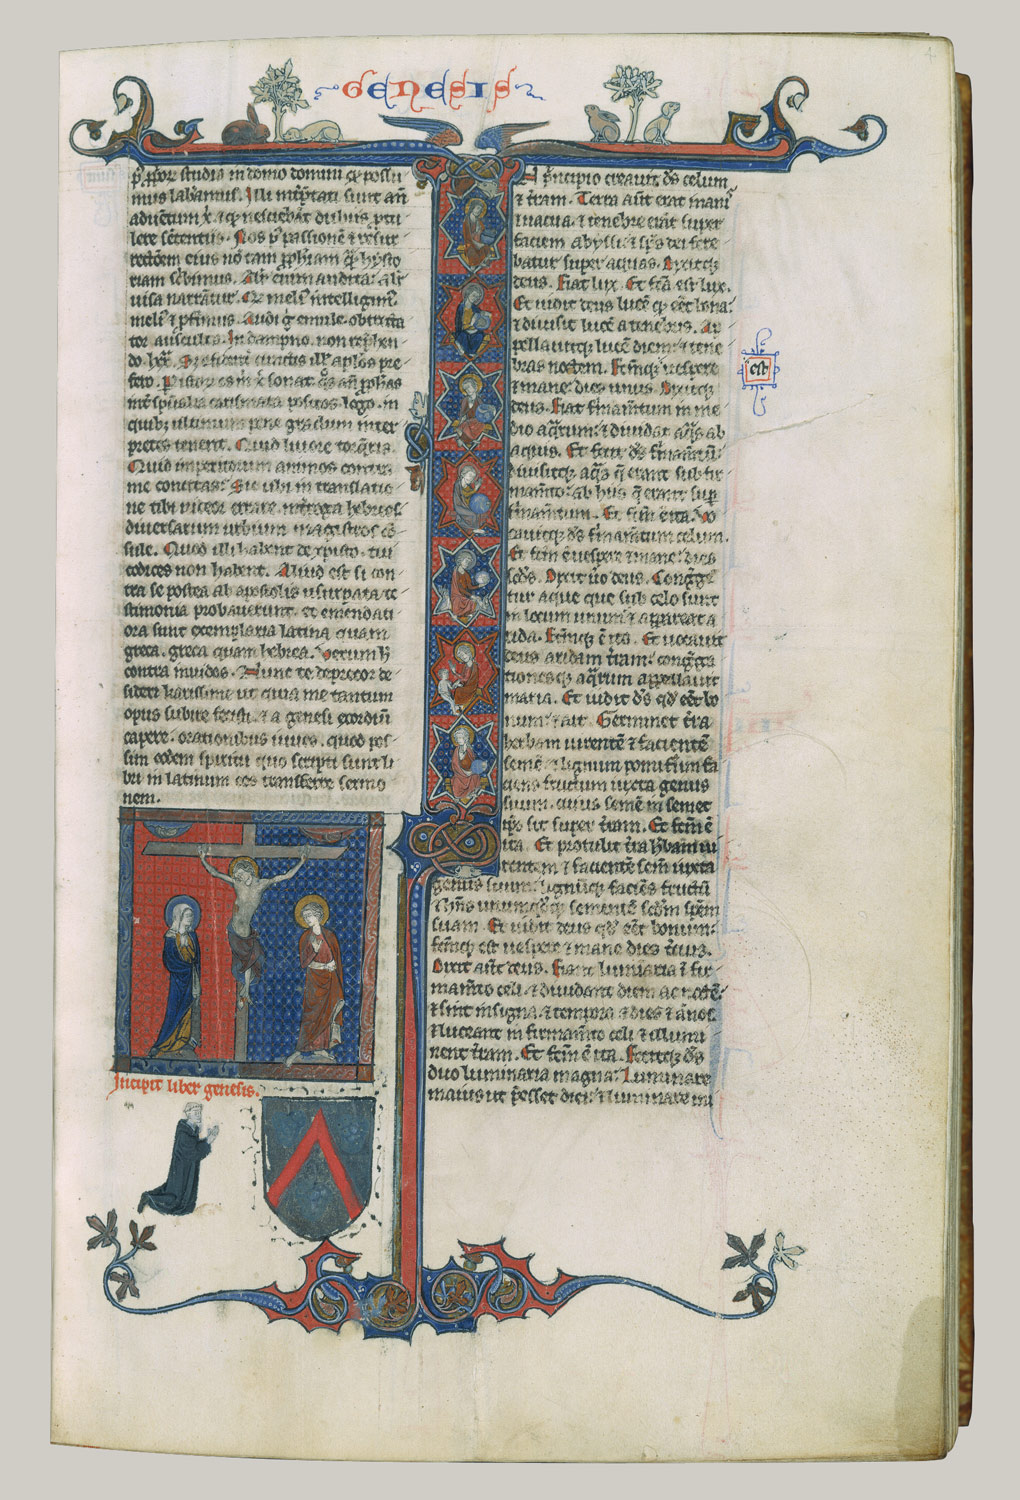 GENESIS
studia in domo domini q̄ possu
mus labamus. Illi int̄p̄tati sunt an̄
aduentum x̄ı & q̄ nesciebāt dubiis p̄tu
lere sētentiis. Nos p̄ passionē & resur
rectōem eius nō tam p̄phetiam q̄m hysto
riam sc̄bimus. Alit̄ enim audita: alit̄
uisa narrāt̄ur. Q̄ meliꝰ intelligimꝰ
meliꝰ & p̄ferimus. Audi g̊ emule. obtrecta
tor ausculta. in dampno. non rep̄hen
do lxx. S; cōfidenter cunctis illis aplōs pre
fero. P̄ istoꝝ os m̄ x̄c sonat. q̄s an̄ p̄phās
int̄ sp̄ualia carismata positos lego. in
quibꝫ ultimum pene gradum inter
pretes tenent. Quid liuore torq̄ris.
Quid imperitorum animos contra
me concitas: Sicubi in translatio
ne tibi uideor errare. int̄roga hebreos
diuersarum urbium magistros cō
sule. Quod illi habent de xp̄isto. tui
codices non habent. Aliud est si con
tra se postea ab apostolis usurpata te
stimonia probauerunt. et emendati
ora sunt exemplaria latina quam
greca. greca quam hebrea. Verum h̄
contra inuidos. Nunc te deprecor de
sideri karissime ut quia me tantum
opus subire fecisti. & a genesi exordiū
capere. orationibus iuues. quod pos
sim eodem spiritu quo scripti sunt li
bri in latinum eos transferre sermo
nem.
Incipit liber genesis.
N p̄ncipio creauit dꝰ celum
& t̄ram. Terra aūt erat inanis
& uacua. & tenebre erāt super
faciem abyssi. & sp̄s dei fere
batur super aquas. Dixitqꝫ
deus. Fiat lux. Et fc̄a est lux.
Et uidit deus lucē q̄ eēt bona:
& diuisit lucē a tenebris. Ap
pellauitqꝫ lucē diem: & tene
bras noctem. Fc̄mqꝫ uespere
& mane: dies unus. Dixitqꝫ
deus. Fiat firmam̄tum in me
dio aq̄rum: & diuidat aq̄s ab
aquis. Et fecit dꝰ firmam̄tū:
diuisitqꝫ aq̄s q̄ erant sub fir
mam̄to: ab hiis q̄ erant sup̄
firmam̄tum. Et fc̄m ē ita. Vo
cauitqꝫ dꝰ firmam̄tum celum.
Et fc̄m ē uespere & mane: dies
scd̄s. Dixit ūo deus. Cong̊ge
tur aque que sub celo sunt
in locum unum: & appareat a
rida. Fc̄mqꝫ ē ita. Et uocauit
deus aridam t̄ram: cong̊ga
tionesqꝫ aq̄rum appellauit
maria. Et uidit dꝰ qd̄ eēt bo
num: & ait. Germinet t̄ra
herbam uirentē & facientē
semē: & lignum pomiferum fa
ciens fructum iuxta genus
suum. cuius semē in semet
ip̄o sit super t̄ram. Et fc̄m ē
ita. Et protulit t̄ra h̄bam ui
rentem & facientē sem̄ iuxta
genus suum: lignūqꝫ faciēs fructū
& hn̄s unumqd̄qꝫ sementē scd̄m spēm
suam. Et uidit deus qd̄ eēt bonum:
fc̄mqꝫ est uespere & mane dies t̄tius.
Dixit aūt deus. Fiant luminaria ī fir
mam̄to celi. & diuidant diem ac noctē:
& sint in signa & tempora & dies & ānos.
& luceant in firmam̄to celi & illumi
nent t̄ram. Et fc̄m ē ita. Fecitqꝫ dꝰ
duo luminaria magna: luminare
maius ut p̄esset diei: & luminare mi